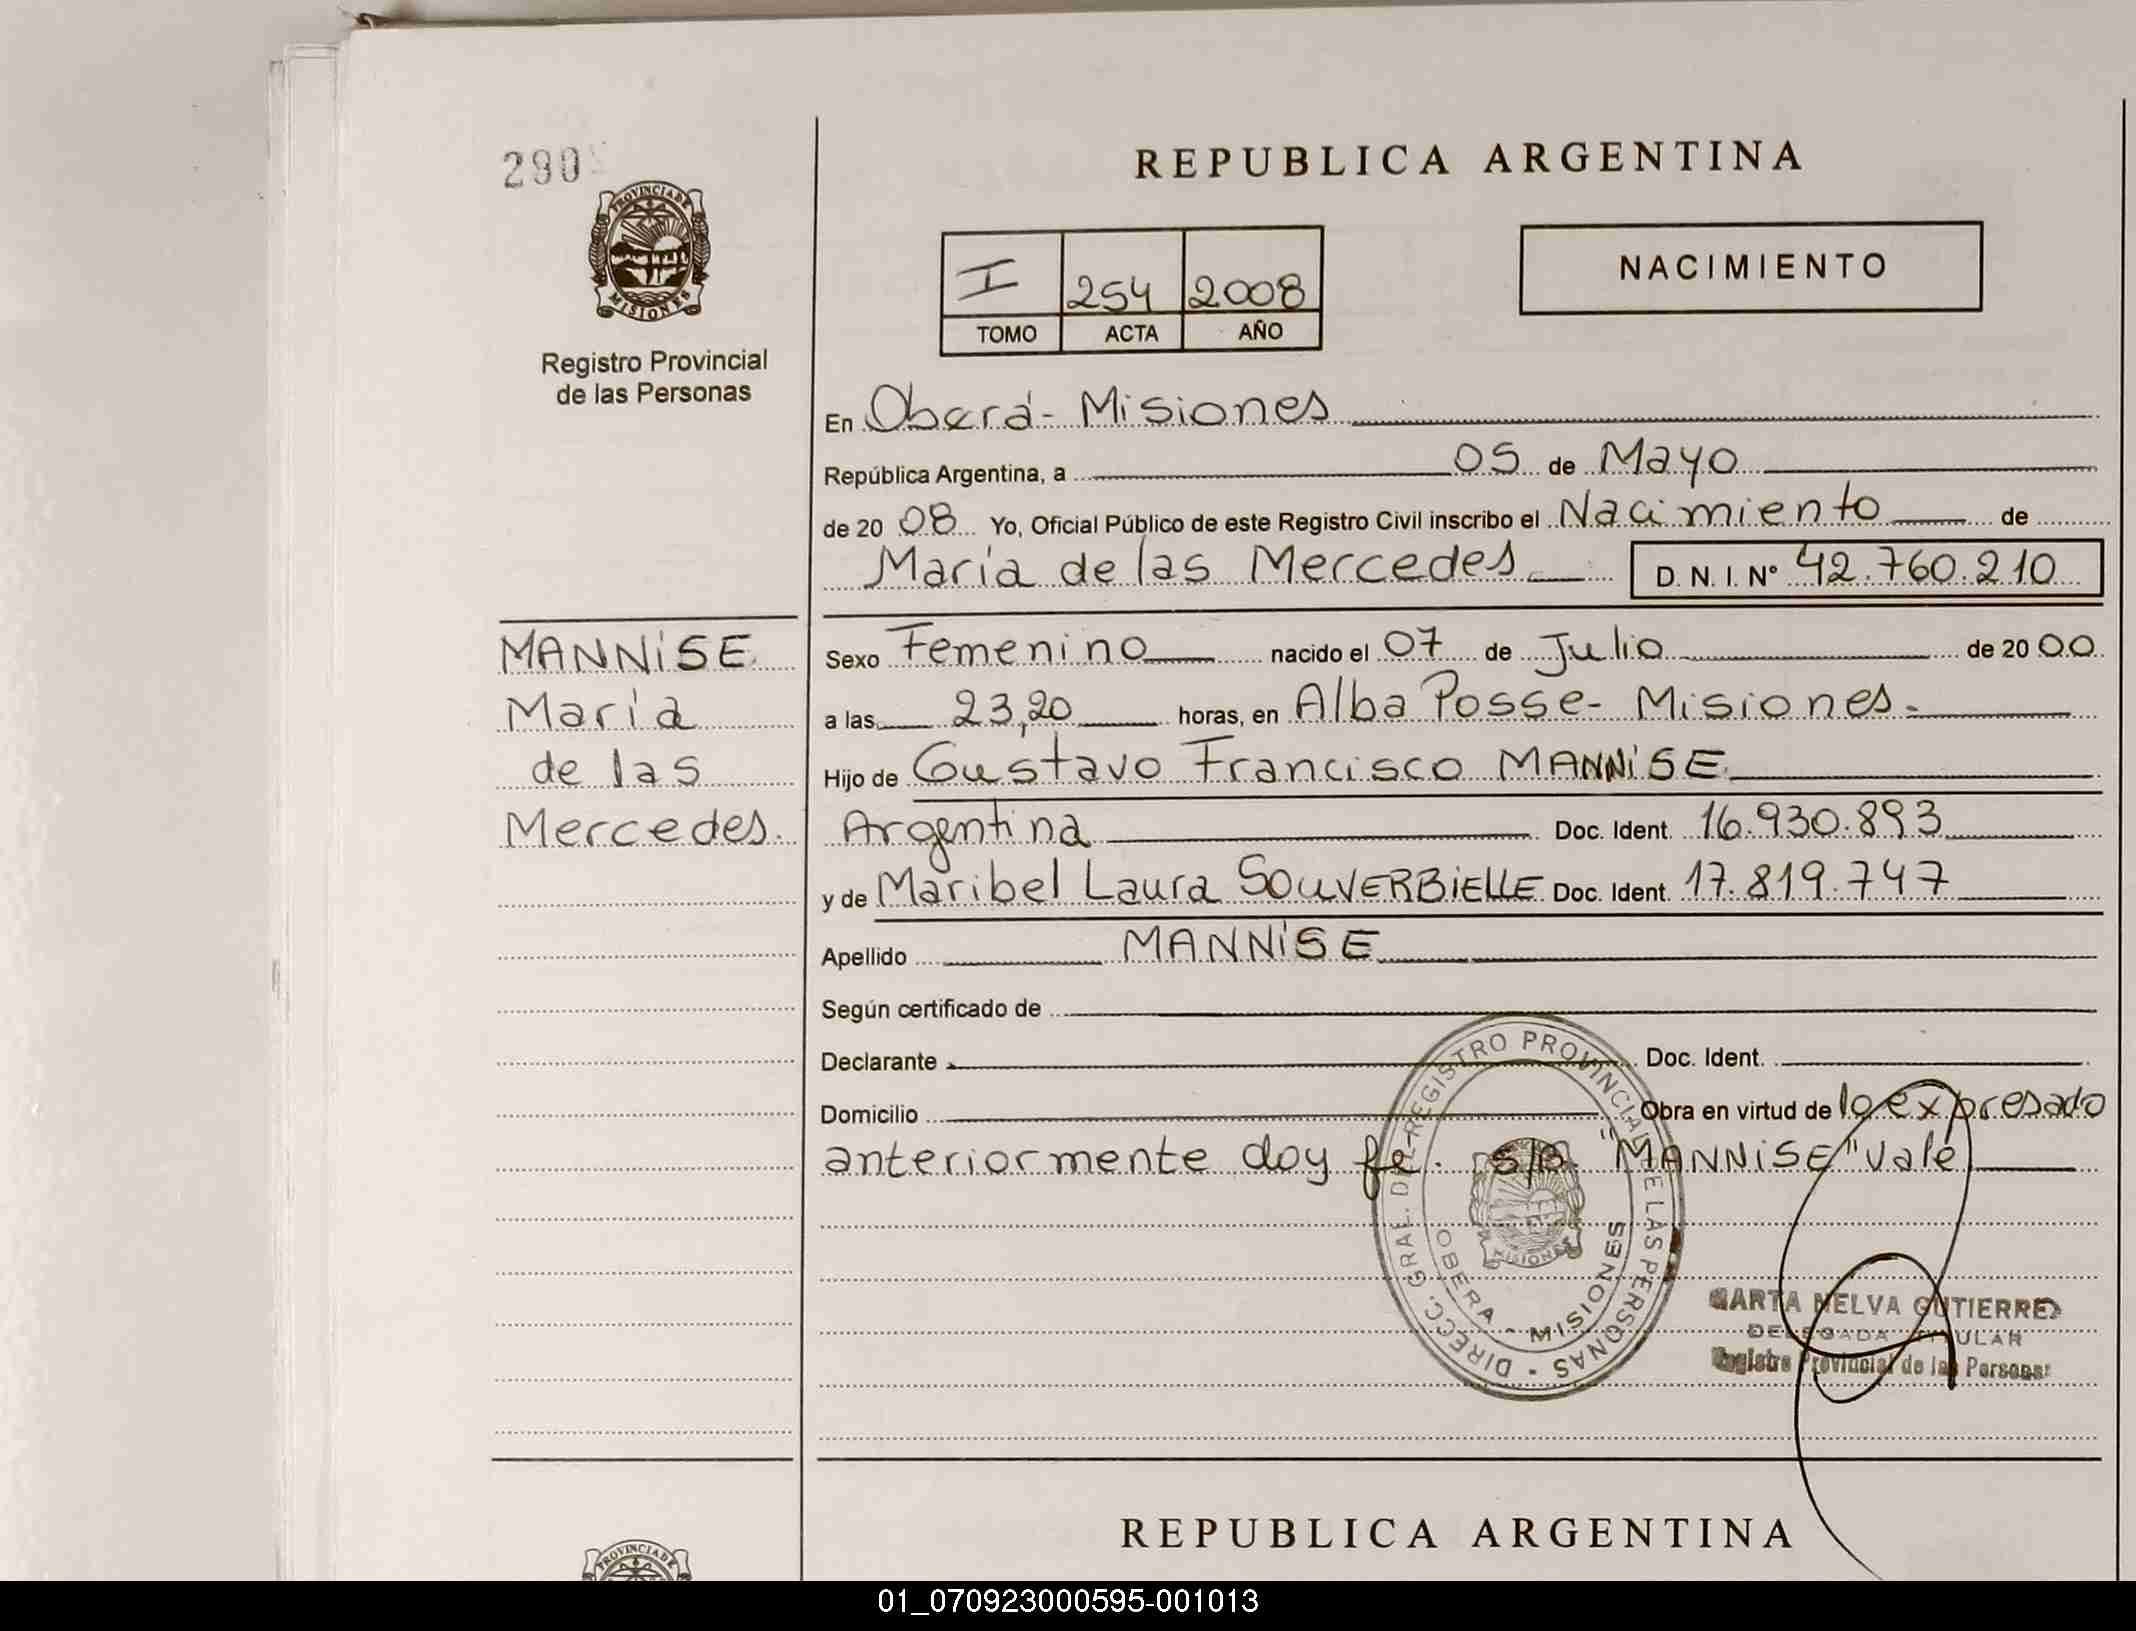 290
PROVINCIA DE
MISIONES
Registro Provincial
de las Personas
MANNiSE
María
de las
Mercedes.
REPUBLICA ARGENTINA
I 254 2008
TOMO ACTA AÑO
NACIMIENTO
En Oberá - Misiones
República Argentina, a 05 de Mayo
de 20 08 Yo, Oficial Público de este Registro Civil inscribo el Nacimiento de
María de las Mercedes D. N. I. N° 42.760.210
Sexo Femenino nacido el 07 de Julio de 20 00
a las 23,20 horas, en Alba Posse - Misiones.
Hijo de Gustavo Francisco MANNiSE
Argentina Doc. Ident. 16.930.893
y de Maribel Laura SOUVERBiELLE Doc. Ident. 17.819.747
Apellido MANNiSE
Según certificado de
Declarante Doc. Ident.
Domicilio Obra en virtud de lo expresado
anteriormente doy fe. s/p. "MANNiSE" vale
DIRECC. GRAL. DEL REGISTRO PROVINCIAL DE LAS PERSONAS -
MISIONES
OBERA - MISIONES
MARTA NELVA GUTIERREZ
DELEGADA TITULAR
Registro Provincial de las Personas
REPUBLICA ARGENTINA
PROVINCIA DE
01_070923000595-001013